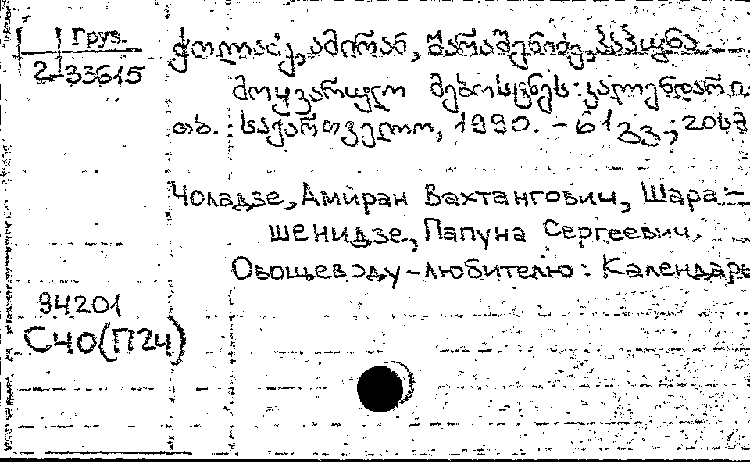 Груз.
2-33615
ჭოლაძე, ამირან, შარაშენიძე, პაპუნა
მოყვარულ მებოსტნეს: კალენდარი.
თბ.: საქართველო, 1990. - 61 გვ.; 20სმ
Чоладзе, Амиран Вахтангович, Шара-
шенидзе, Папуна Сергеевич.
Овощеводу-любителю: Календарь
94201
С40(П24)